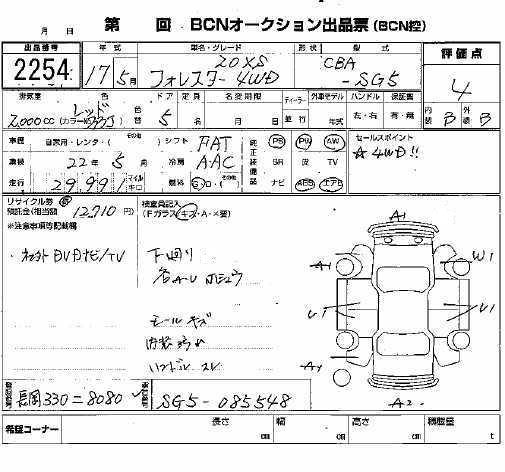 月 日 第 回 BCNオークション出品票(BCN控)
出品番号 年 式 車名・グレード 形状 型 式 評価点
2254 17年 5月 20XS フォレスター 4WD CBA -SG5 4
排気量 色 ドア 定員 名変期限 ディーラー 外車モデル ハンドル 保証書 内装 外装
2,000CC レッド (カラーNo. ) 5 月 日 並行 左・右 有・無 B B
車歴 自家用・レンタ・(その他 ) シフト FAT 純正装備品 PS PW AW セールスポイント
車検 22年 5月 冷房 AAC SR 革 TV ☆4WD!!
走行 29,991 マイル キロ 燃料 G・D・(その他 ) ナビ ABS エアB
リサイクル券 預託金(相当額 12,710円) 検査員記入 (Fガラス キズ・A・X要)
※注意事項等記載欄
DVDナビ/TV 下回り
モールキズ
ハンドル スレ
A1
A1
W1
U1
U1
A1
A2
登録番号 長岡330=8080 車台番号 SG5-085548
希望コーナー 長さ cm 幅 cm 高さ cm 積載量 t